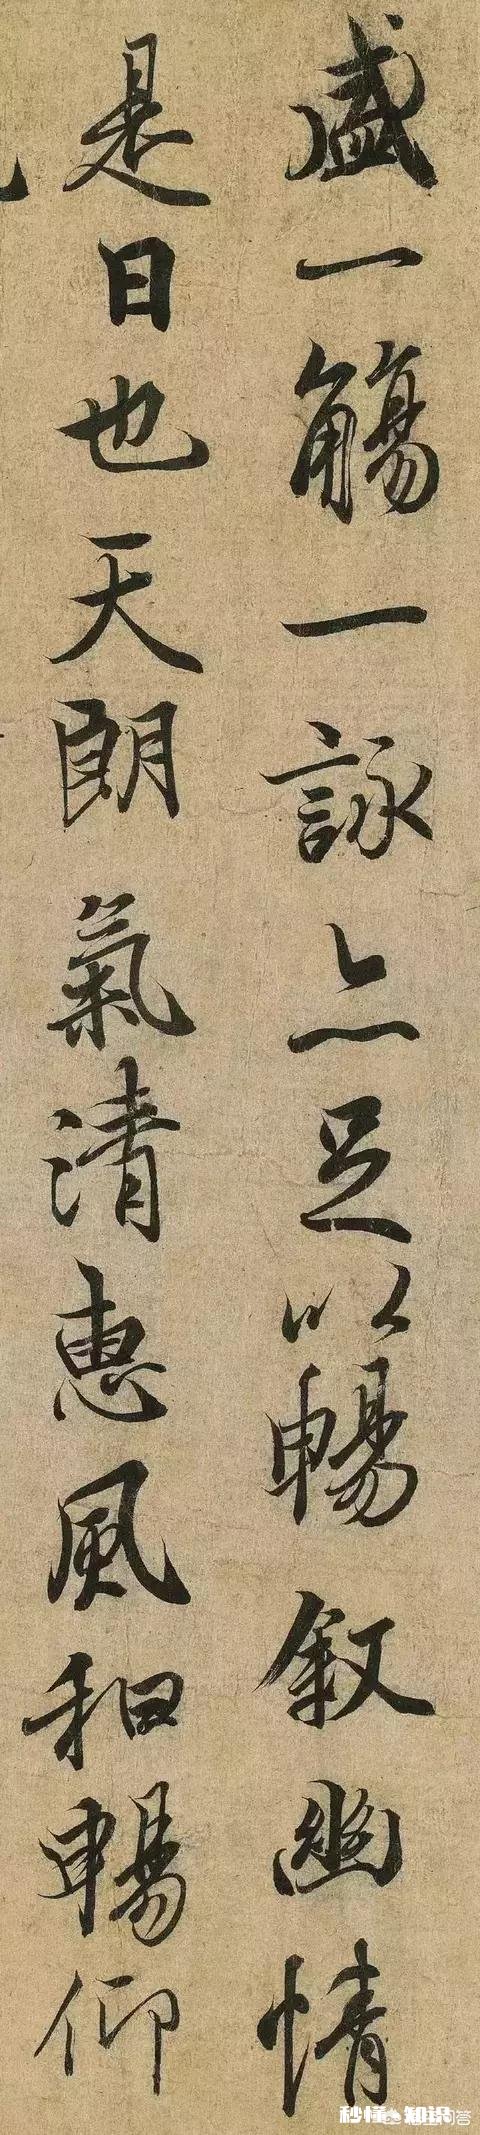 盛一觴一詠亦足以暢敘幽情
是日也天朗氣清惠風和暢仰
秒懂 知识